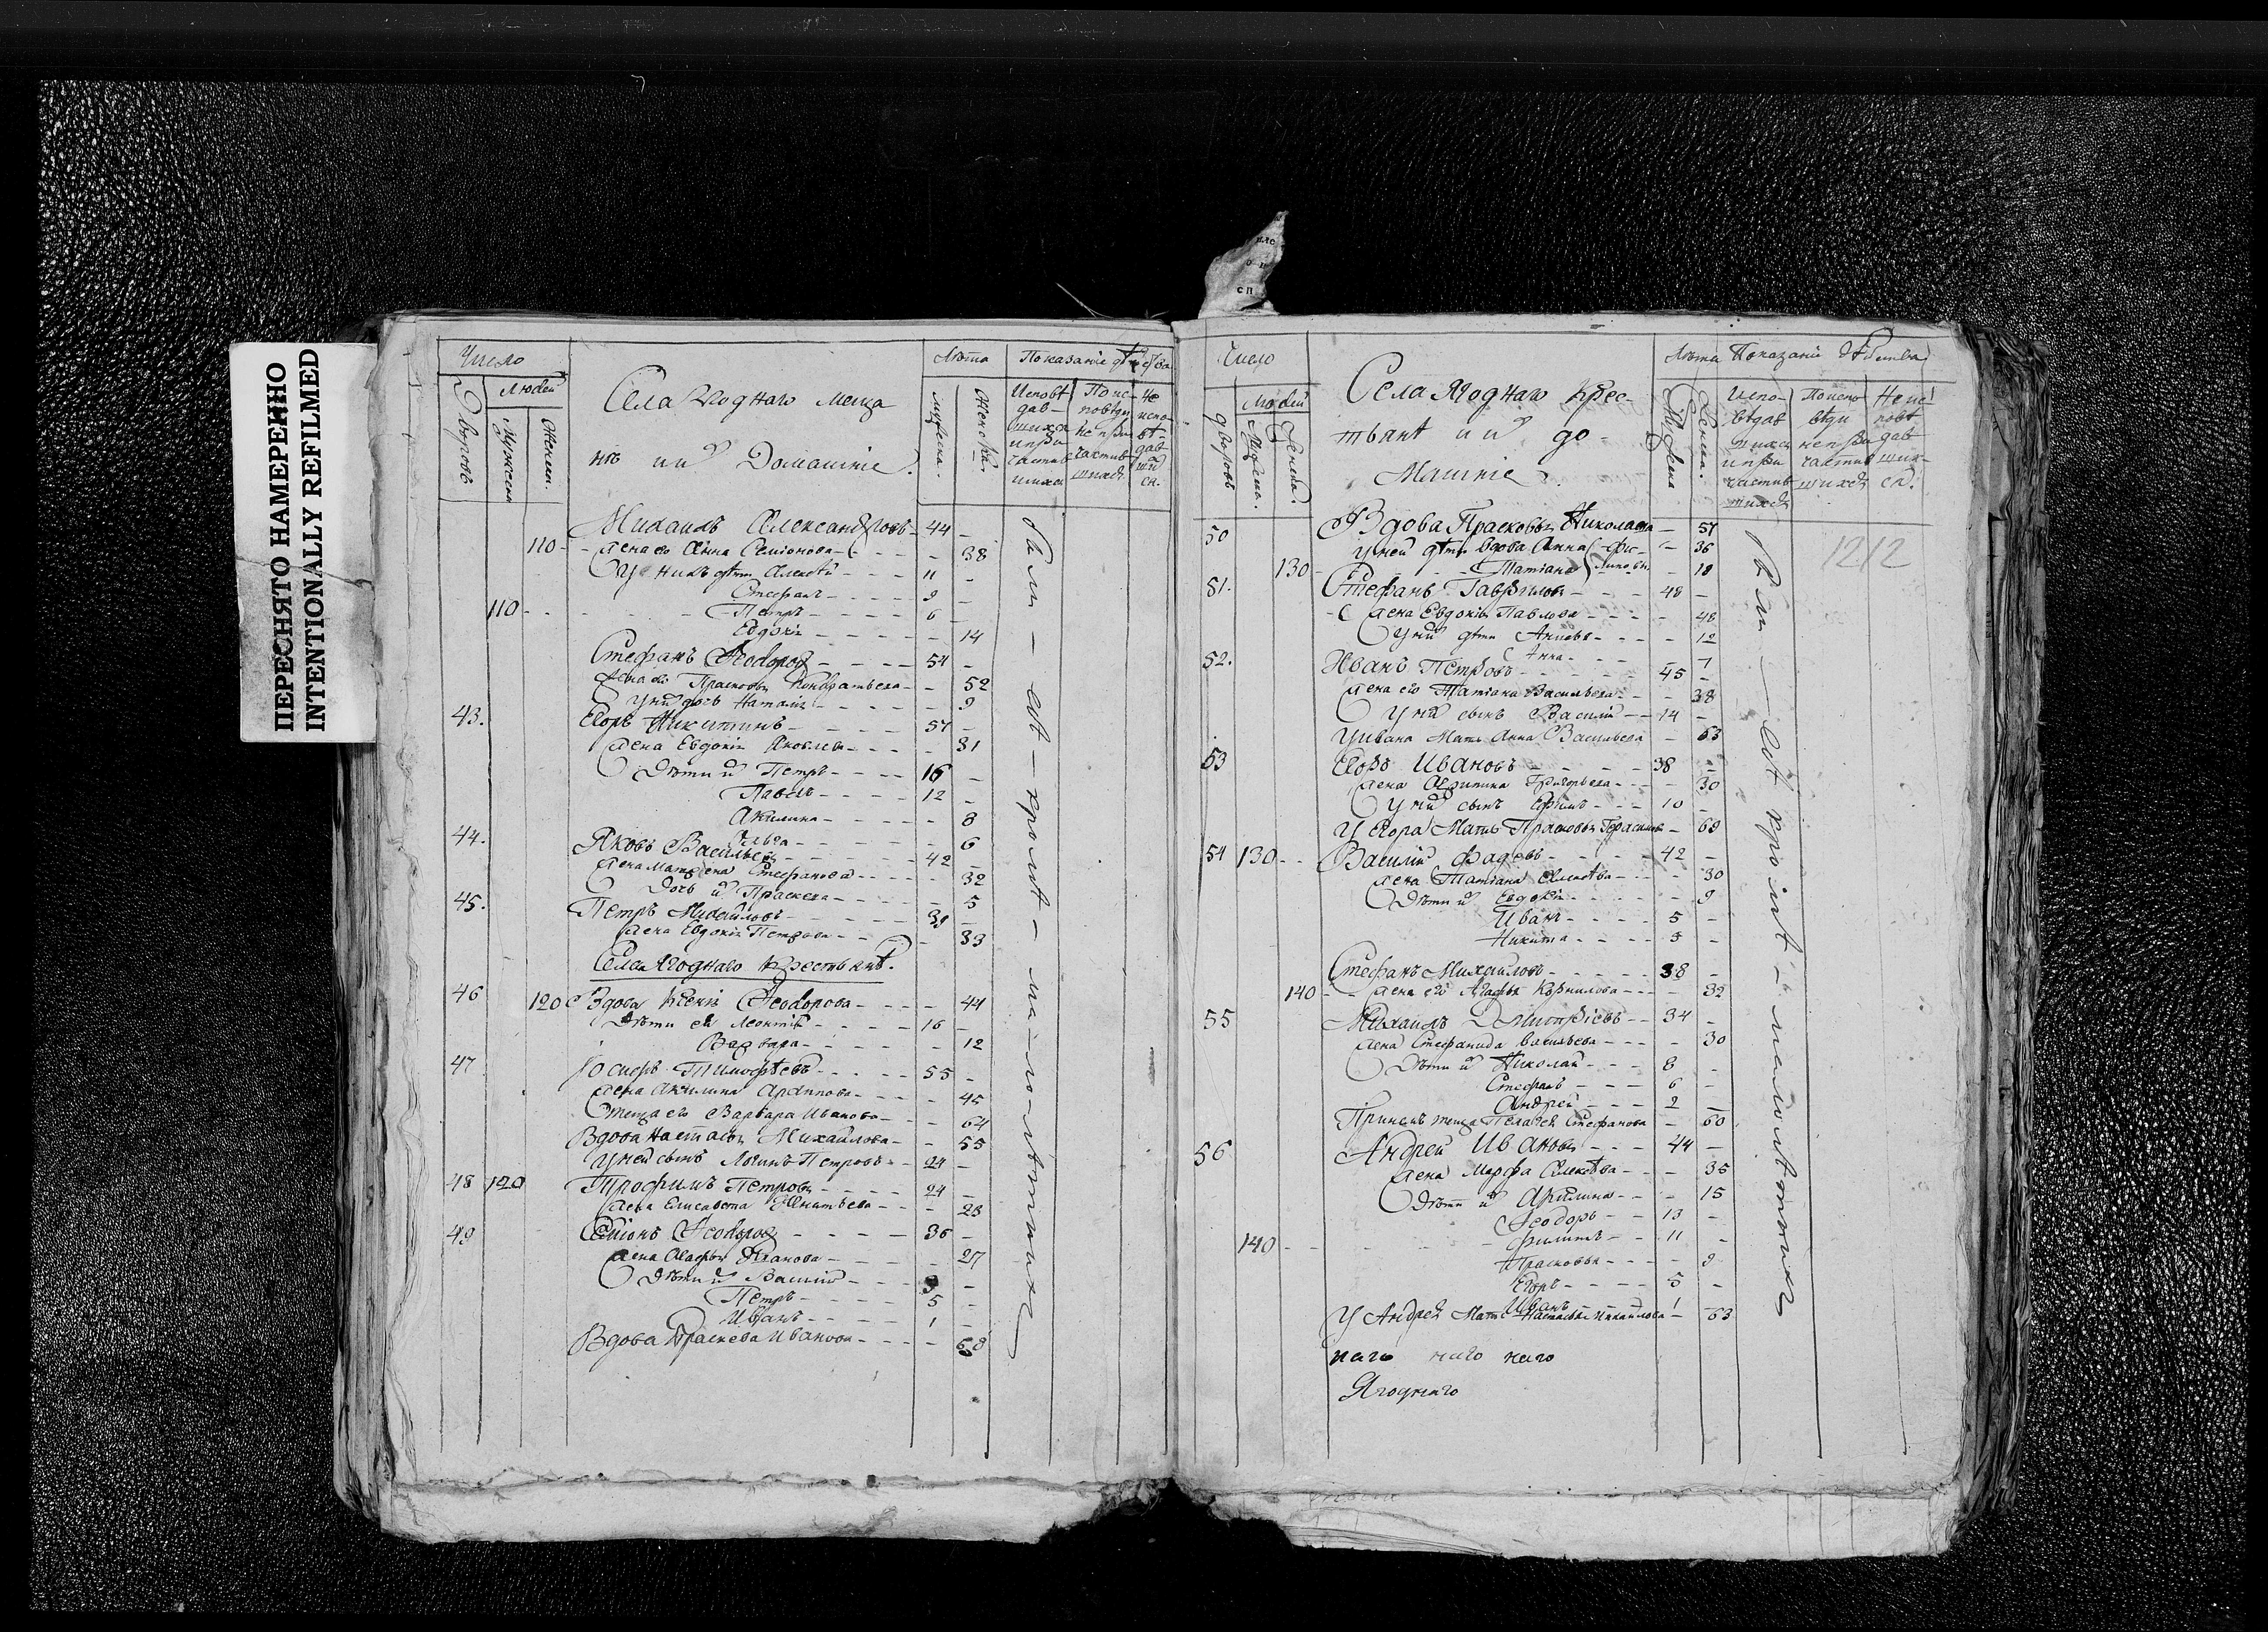 ПЕРЕСНЯТО НАМЕРЕННО
INTENTIONALLY REFILMED
Число
Людей
Дворовъ
Мужеска
Женск.
Села Ягоднаго меща
нъ и ихъ Домашніе.
Лѣта
мужеска.
Женска.
Показаніе
Исповѣ
дав-
шихся
и при
частив
шихся
По ис-
повѣди
не при
частив
шихся
Не
испо-
вѣ-
дав
ших
ся.
Михаилъ Александровъ 44
110 жена ео Анна Семіонова 38
У нихъ дѣти Алексѣй 11
Стефанъ 9
110 Петръ 6
Евдокія 14
Стефанъ Ѳеодоровъ 54
жена ео Прасковья Кондратьева 52
У них дочь Наталія 9
43. Егоръ Никитинъ 57
жена Евдокія Яковлева 31
Дѣти их Петръ 16
Павелъ 12
Акилина 8
6
44. Яковъ Васильевъ 42
жена Матрена Стефанова 32
Дочь их Праскева 5
45. Петръ Михайловъ 39
жена Евдокія Петрова 33
Села Ягоднаго Крестьянѣ.
46 120 Вдова Ксенія Ѳеодорова 44
Дѣти ея Леонтій 16
Варвара 12
47 Іосифъ Тимофѣевъ 55
жена Акилина Архипова 45
теща его Варвара Иванова 64
Вдова Настасья Михайлова 55
У ней сынъ Логинъ Петровъ 24
48 120 Трофимъ Петровъ 24
жена Елисавета 23
49 Семіонъ Ѳеодоровъ 36
жена Агафья Иванова 27
Дѣти их Василій 9
Петръ 5
Иванъ 1
Вдова Праскева Иванова 68
были — всѣ — кромѣ — малолѣтныхъ
Число
Людей
дворовъ
Мужеска.
Женска.
Села Ягоднаго Крес-
тьянѣ и их до-
машніе.
Лѣта
Мужеска
Женска.
Показаніе
Испо-
вѣдав
шихся
и при
частив
шихся
По испо
вѣди
не при
частив
шихся
Не ис
повѣ
дав
ших-
ся.
1212
50 Вдова Прасковья Николаева 57
У ней дѣти вдова Анна 36
130 Татіана 18
51. Стефанъ Гаврилов 48
жена Евдокія Павлова 48
У них дѣти 12
Анна 7
52. Иванъ Петровъ 45
жена его Татіана Васильева 38
У них сынъ Василій 14
У Ивана Мать Анна Васильева 63
53 Егоръ Ивановъ 38
жена Акилина Григорьева 30
У них сынъ Ефимъ 10
У Егора Мать Прасковья Герасимова 69
54 130 Василій Фадѣевъ 42
жена Татіана Алексѣва 30
Дѣти их Евдокія 9
Иванъ 5
Никита 3
Стефанъ Михайловъ 38
140 жена его Агафья Корнилова 32
55 Михаилъ Дмитріевъ 34
жена Стефанида Васильева 30
Дѣти их Николай 8
Стефанъ 6
Андрей 2
При нихъ теща Пелагея Стефанова 60
56 Андрей Ивановъ 44
жена Марфа Алексѣва 35
Дѣти их Акилина 15
Ѳеодоръ 13
140 Филипъ 11
Прасковья 9
Егоръ 5
Иванъ 1
У Андрея Мать Настасья Михайлова 63
были — всѣ кромѣ — малолѣтныхъ
наго наго наго
Ягоднаго